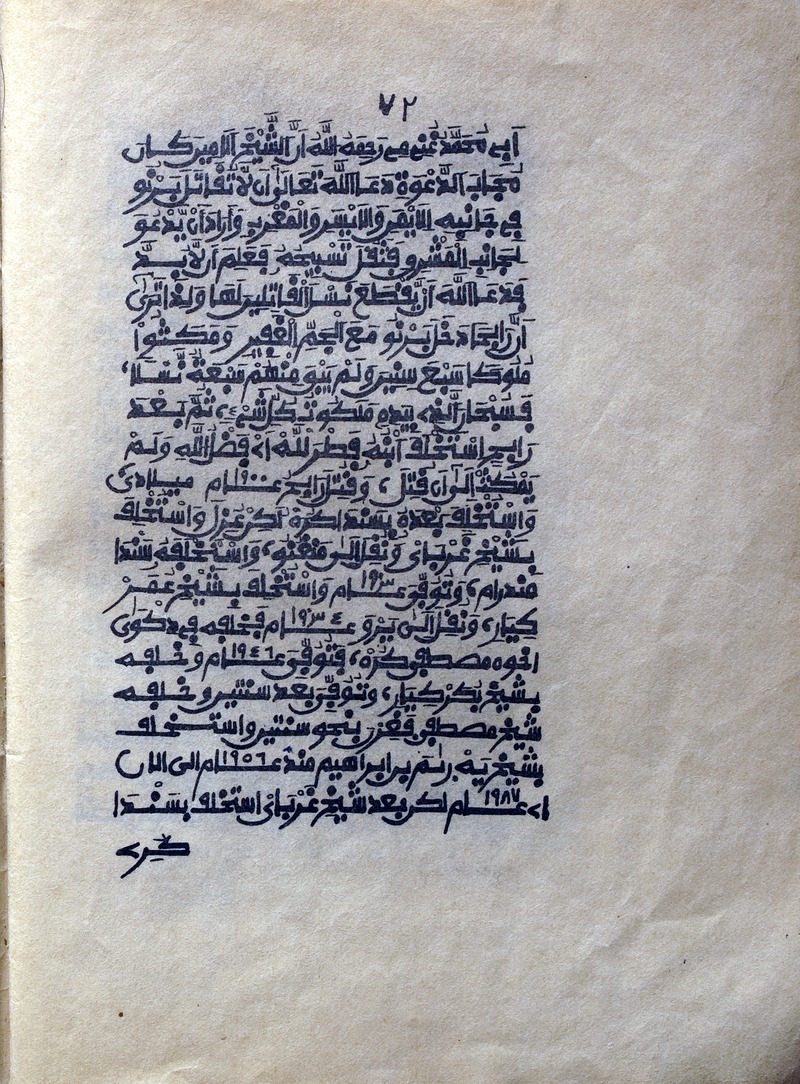 ٧٢
أبي محمّد غنيمي رحمه اللّه أنّ الشّيخ الامير كان
مجاب الدّعوة دعا اللّه تعالى أن لا تقاتل برنو
في جانبه الايمن والايسر والمغرب وأراد أن يدعو
لجانب المشرق فثقل تسبيحه فعلم أن لا بدّ
فدعا اللّه أن يقطع نسل القاتلين لها ولذا ترى
أن رابحا دخل برنو مع الجمّ الغفير ومكثوا
ملوكا سبع سنين ولم يبق منهم سبعة نسلا
فسبحان الذي بيده ملكوت كل شيء، ثمّ بعد
رابح استخلف ابنه فطر للّه اي فضل اللّه ولم
يمكث إلى ان قتل، وقتل رابح عـــام ١٩٠٠ ميلادي
واستخلف بعده بسندا كره لكن عزل واستخلف
بشيخ غرباي ونقل الى منغنو، واستخلفه سندا
مندرام، وتوفّي عـــام ١٩٣ واستخلف بشيخ عمر
كيار، ونقل الى بيرو عـــام ١٩٣٤ فخلفه في دكوى
اخوه مصطفى كره، فتوفّي عـــام ١٩٤٦ وخلفه
بشيخ بكر كيار، وتوفّي بعد سنتين وخلفه
شيخ مصطفى فعزل بنحو سنتين واستخلف
بشيخ يه ريم بن ابراهيم منذ عـــام ١٩٥٦ الى الان
اي عـــام ١٩٨٧ لكن بعد شيخ غرباي استخلف بسندا
كري